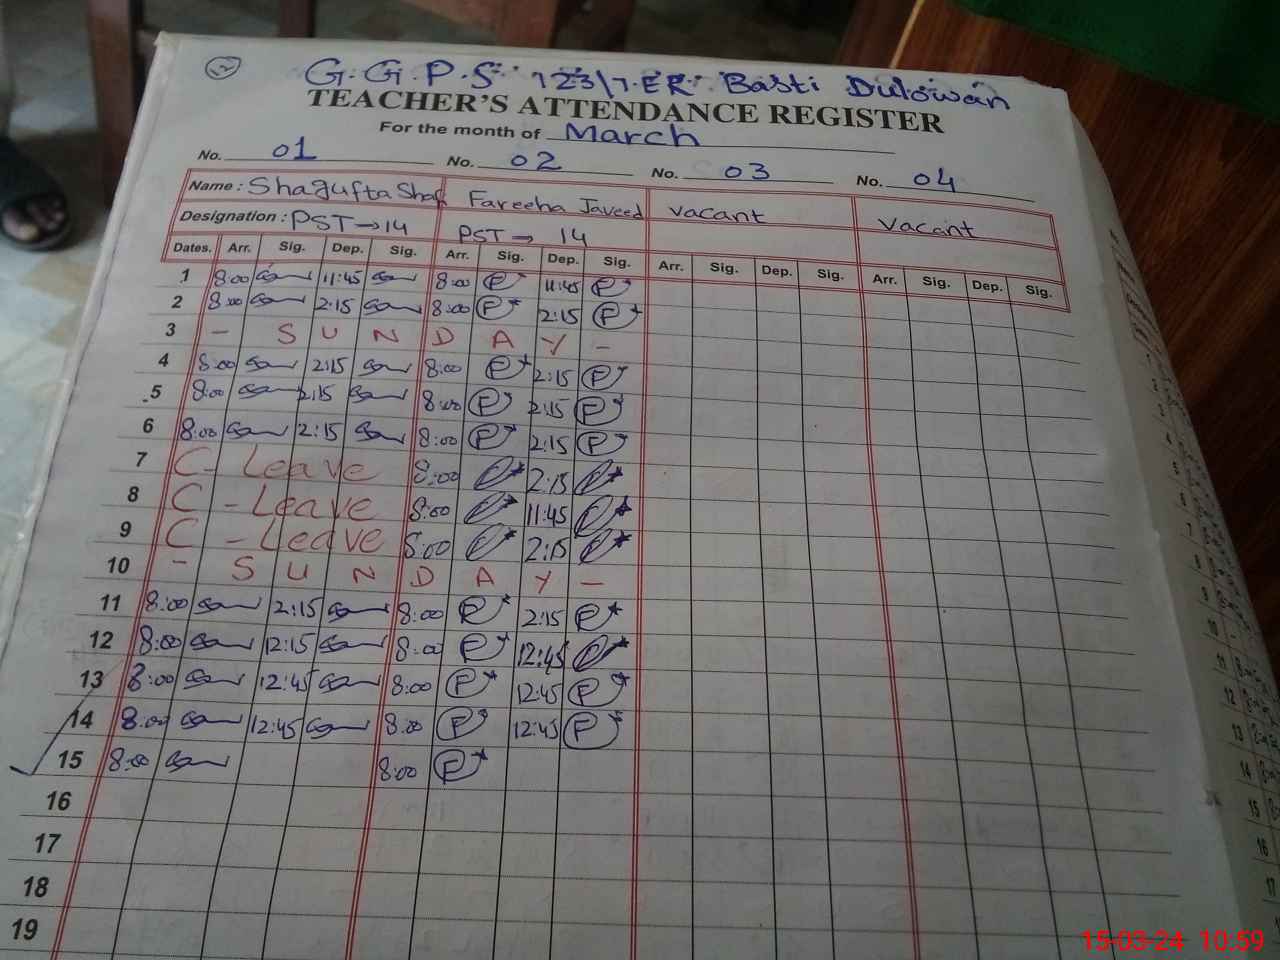 G.G.P.S 123/7.ER Basti Dulowan
TEACHER'S ATTENDANCE REGISTER
For the month of March
No. 01 No. 02 No. 03 No. 04
Name: Shagufta Shafi Fareeha Javeed vacant vacant
Designation: PST → 14 PST → 14
Dates. Arr. Sig. Dep. Sig. Arr. Sig. Dep. Sig. Arr. Sig. Dep. Sig. Arr. Sig. Dep. Sig.
1 8:00 11:45 8:00 11:45
2 8:00 2:15 8:00 2:15
3 - S U N D A Y -
4 8:00 2:15 8:00 2:15
5 8:00 2:15 8:00 2:15
6 8:00 2:15 8:00 2:15
7 C - Leave 8:00 2:15
8 C - Leave 8:00 11:45
9 C - Leave 8:00 2:15
10 - S U N D A Y -
11 8:00 2:15 8:00 2:15
12 8:00 12:15 8:00 12:45
13 8:00 12:45 8:00 12:45
14 8:00 12:45 8:00 12:45
15 8:00 8:00
16
17
18
19
15-03-24 10:59